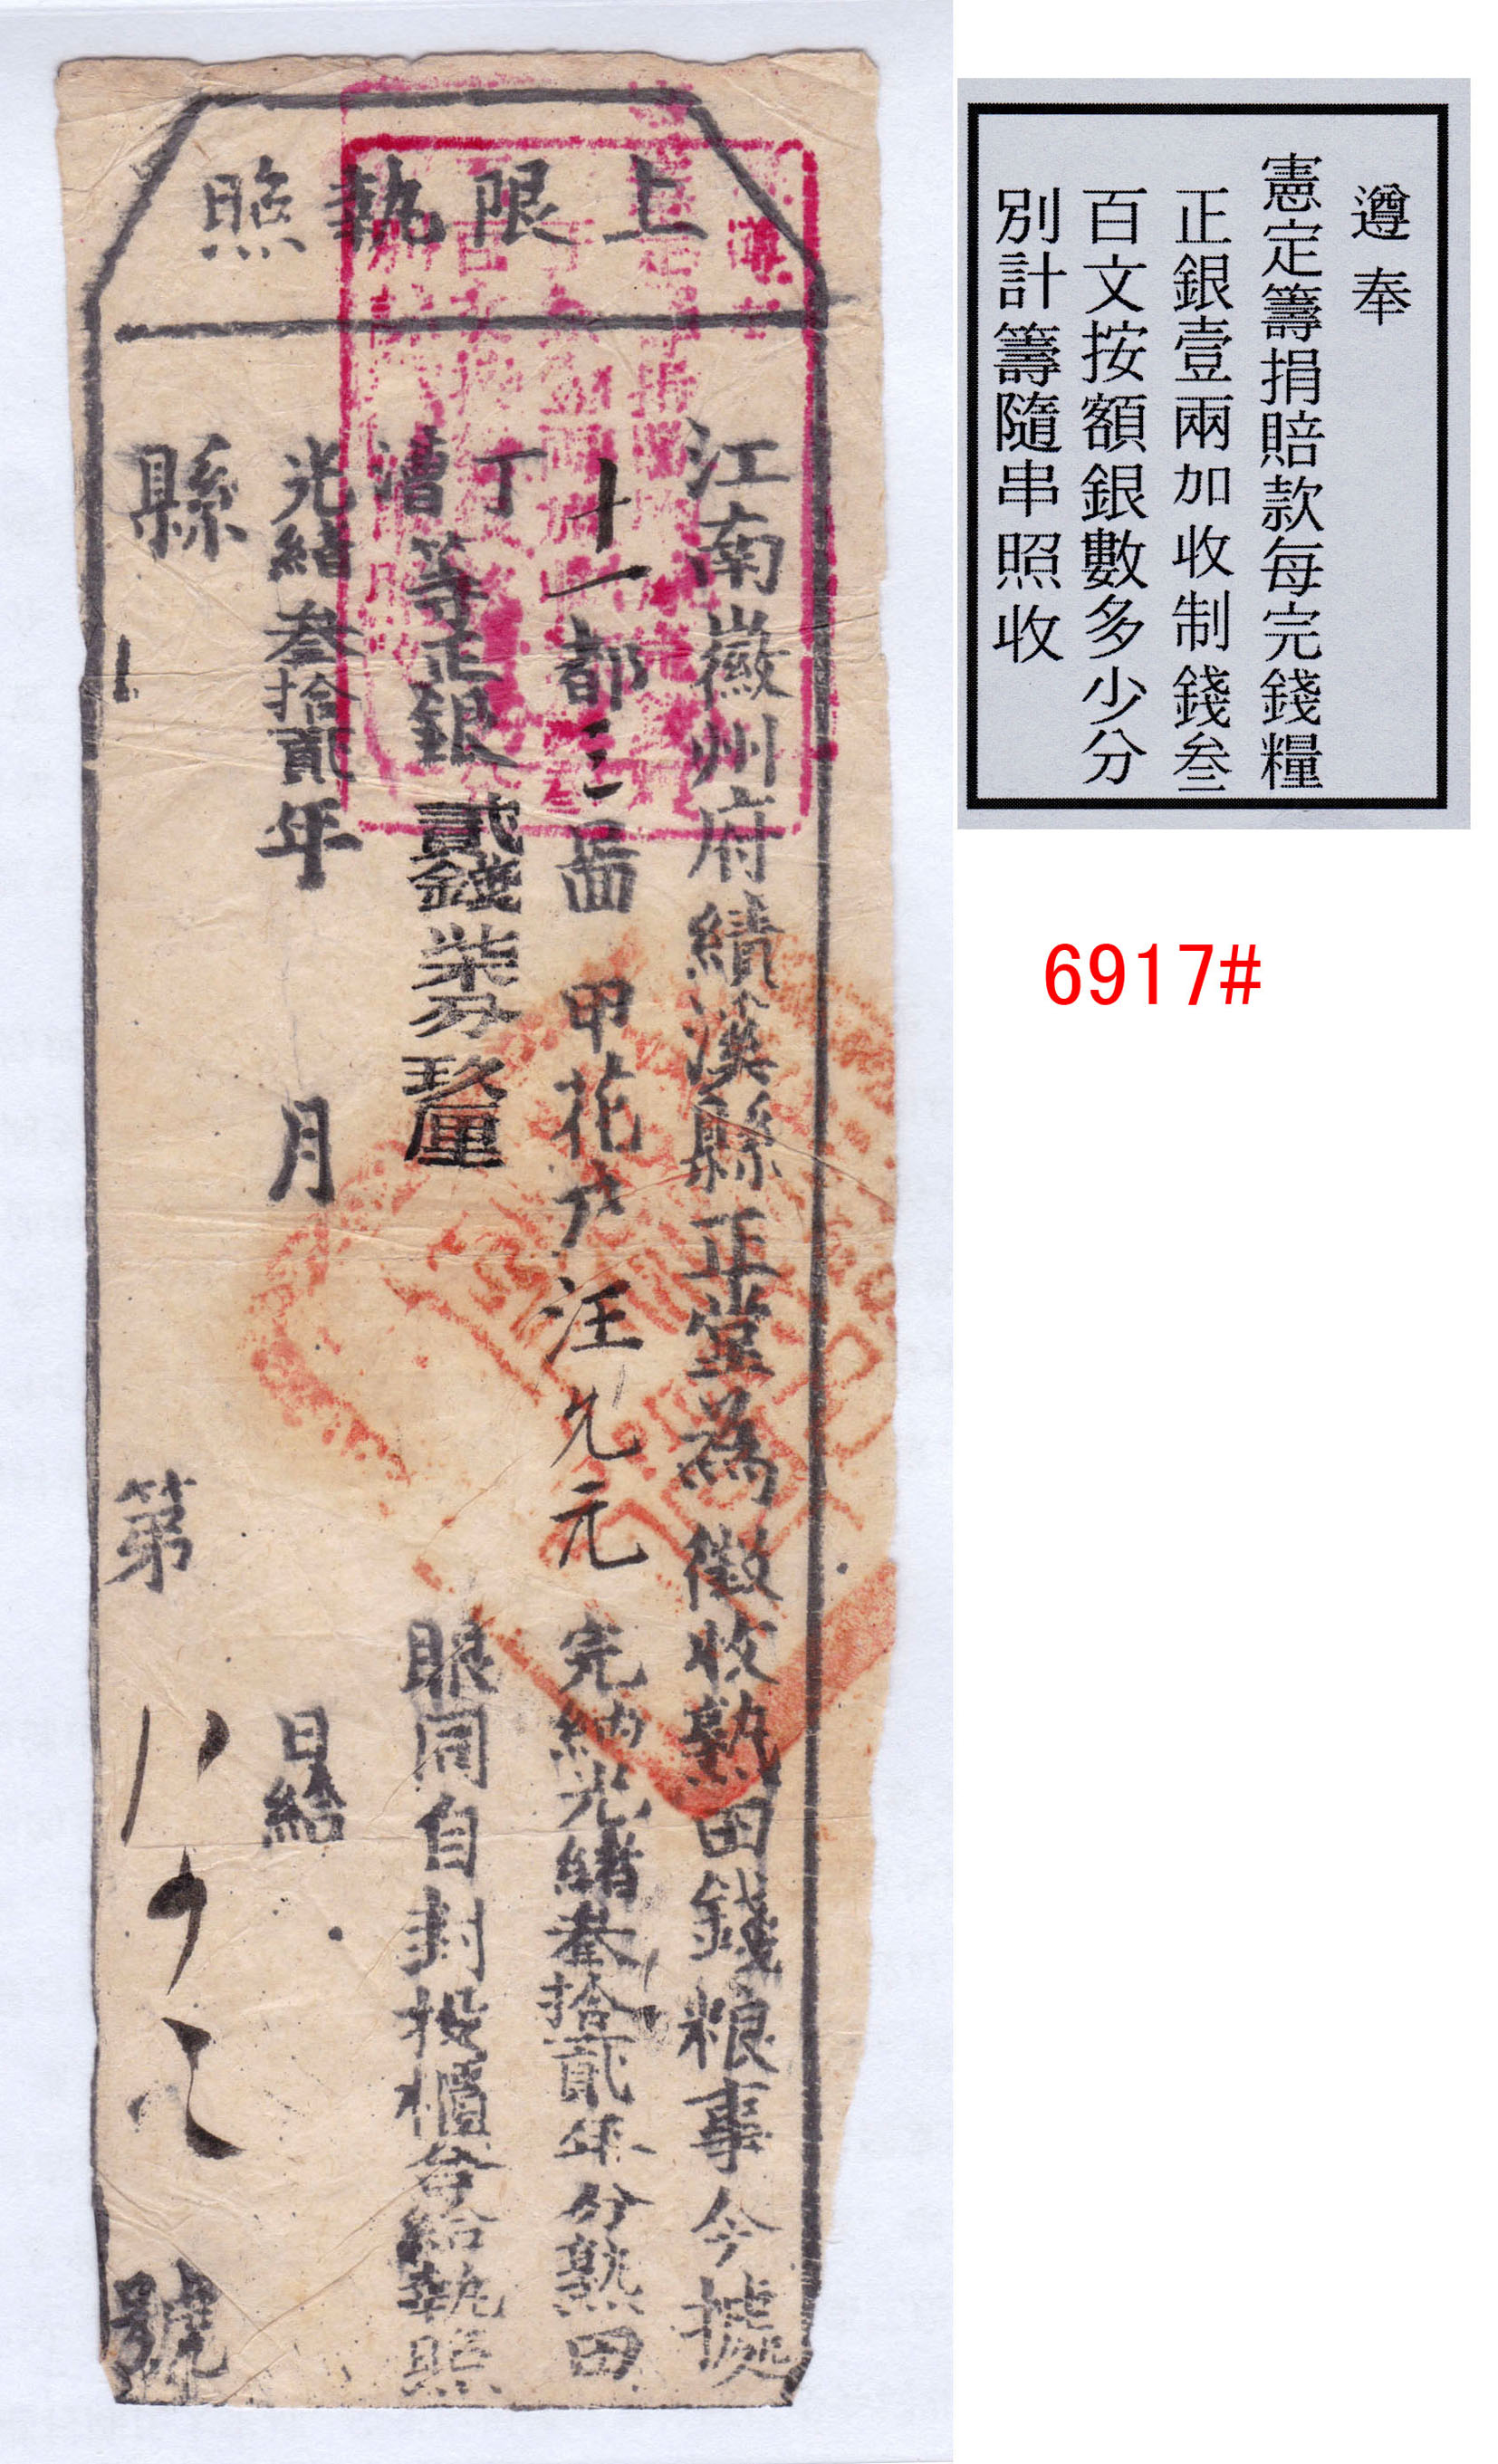 上限執照
江南徽州府績溪縣正堂為徵收熟田錢粮事今據
十一都三啚 甲花户汪九元 完納光緒叁拾貳年分熟田
丁漕等正銀貳錢柒分玖厘 眼同自封投櫃合給執照
光緒叁拾貳年 月 日給
縣 第 號
遵奉
憲定籌捐賠款每完錢糧
正銀壹兩加收制錢叁
百文按額銀數多少分
別計籌隨串照收
6917#